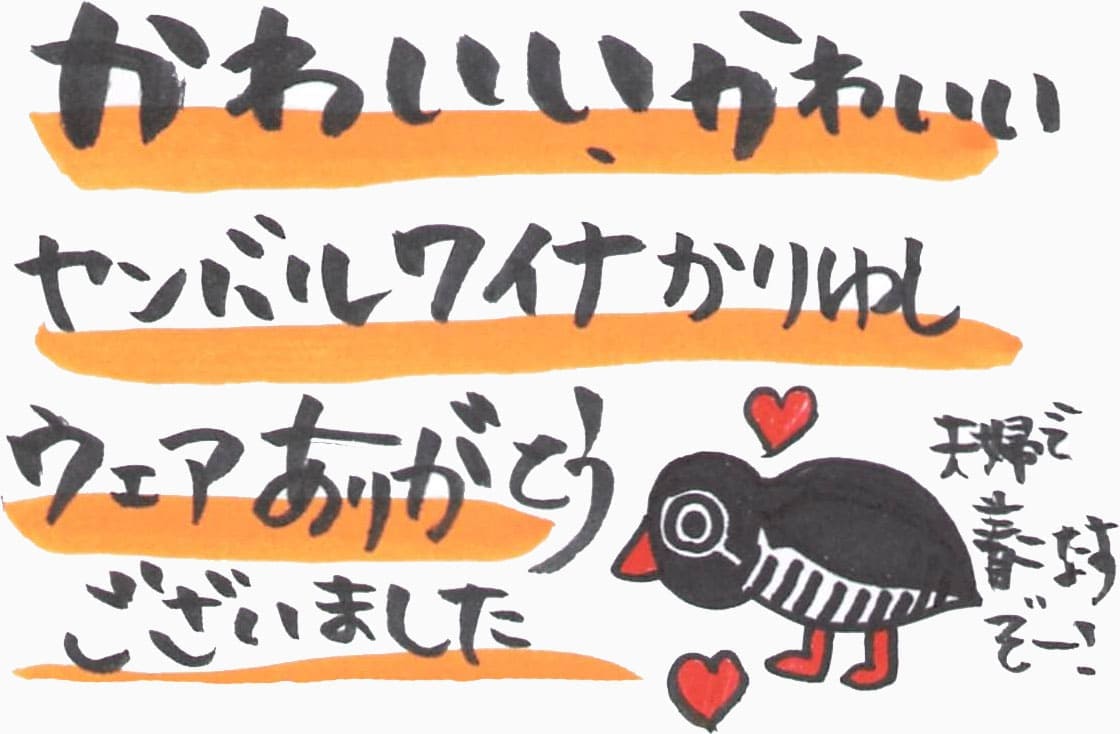 かわいいかわいい
ヤンバルクイナかりゆし
ウェアありがとう
ございました
夫婦で
着なす
ぞー!